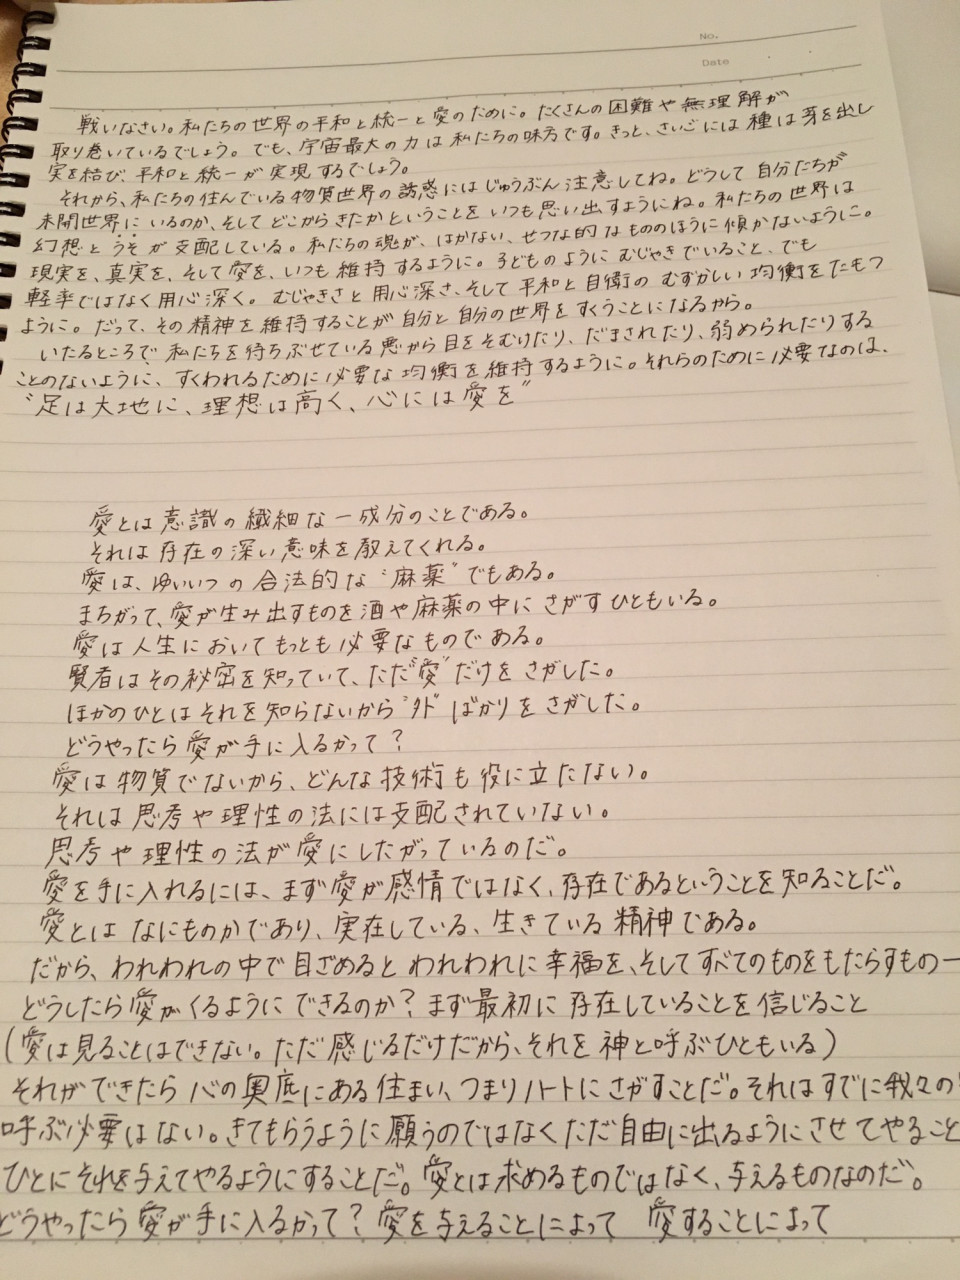 No.
Date
戦いなさい。私たちの世界の平和と統一と愛のために。たくさんの困難や無理解が
取り巻いているでしょう。でも、宇宙最大の力は私たちの味方です。きっと、さいごには種は芽を出し
実を結び、平和と統一が実現するでしょう。
それから、私たちの住んでいる物質世界の誘惑にはじゅうぶん注意してね。どうして自分たちが
未開世界にいるのか、そしてどこからきたかということをいつも思い出すようにね。私たちの世界は
幻想とうそが支配している。私たちの魂が、はかない、せつな的なもののほうに傾かないように。
現実を、真実を、そして愛を、いつも維持するように。子どものようにむじゃきでいること、でも
軽率ではなく用心深く。むじゃきさと用心深さ、そして平和と自衛のむずかしい均衡をたもつ
ように。だって、その精神を維持することが自分と自分の世界をすくうことになるから。
いたるところで私たちを待ちぶせている悪から目をそむけたり、だまされたり、弱められたりする
ことのないように、すくわれるために必要な均衡を維持するように。それらのために必要なのは、
"足は大地に、理想は高く、心には愛を"
愛とは意識の繊細な一成分のことである。
それは存在の深い意味を教えてくれる。
愛は、ゆいいつの合法的な"麻薬"でもある。
まちがって、愛が生み出すものを酒や麻薬の中にさがすひともいる。
愛は人生においてもっとも必要なものである。
賢者はその秘密を知っていて、ただ"愛"だけをさがした。
ほかのひとはそれを知らないから"外"ばかりをさがした。
どうやったら愛が手に入るかって?
愛は物質でないから、どんな技術も役に立たない。
それは思考や理性の法には支配されていない。
思考や理性の法が愛にしたがっているのだ。
愛を手に入れるには、まず愛が感情ではなく、存在であるということを知ることだ。
愛とはなにものかであり、実在している、生きている精神である。
だから、われわれの中で目ざめるとわれわれに幸福を、そしてすべてのものをもたらすもの一
どうしたら愛がくるようにできるのか?まず最初に存在していることを信じること
(愛は見ることはできない。ただ感じるだけだから、それを神と呼ぶひともいる)
それができたら心の奥底にある住まい、つまりハートにさがすことだ。それはすでに我々の
呼ぶ必要はない。きてもらうように願うのではなくただ自由に出るようにさせてやること
ひとにそれを与えてやるようにすることだ。愛とは求めるものではなく、与えるものなのだ。
どうやったら愛が手に入るかって?愛を与えることによって 愛することによって